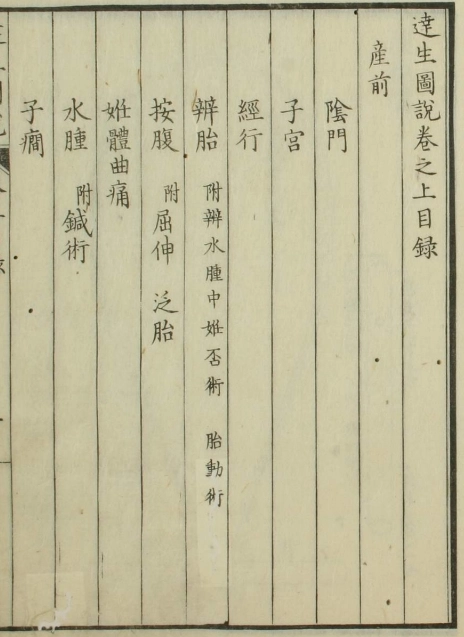 達生圖說卷之上目録
産前
陰門
子宮
經行
辨胎 附辨水腫中妊否術 胎動術
按腹 附屈伸 泛胎
妊體曲痛
水腫 附鍼術
子癇